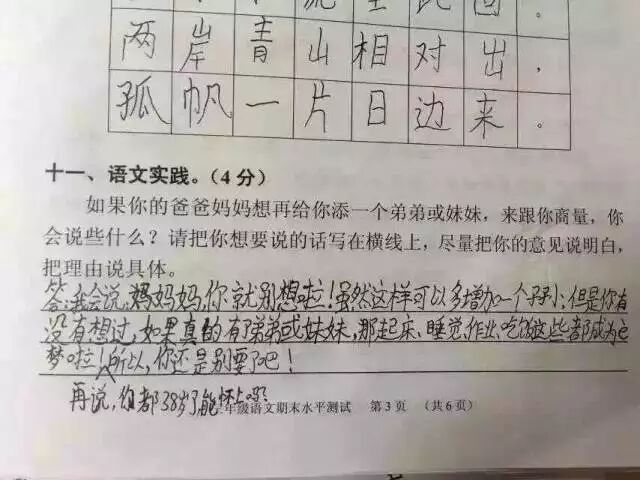 流 至 此 回 。
两 岸 青 山 相 对 出 ，
孤 帆 一 片 日 边 来 。
十一、语文实践。（4 分）
如果你的爸爸妈妈想再给你添一个弟弟或妹妹，来跟你商量，你
会说些什么？请把你想要说的话写在横线上，尽量把你的意见说明白，
把理由说具体。
答：我会说，妈妈妈，你就别想啦！虽然这样可以多增加一个孩子，但是你有
没有想过，如果真的有弟弟或妹妹，那起床、睡觉、作业、吃饭这些都成为
梦啦！所以，你还是别要了吧！
再说，你都38岁了能怀上吗？
年级语文期末水平测试 第 3 页 （共 6 页）